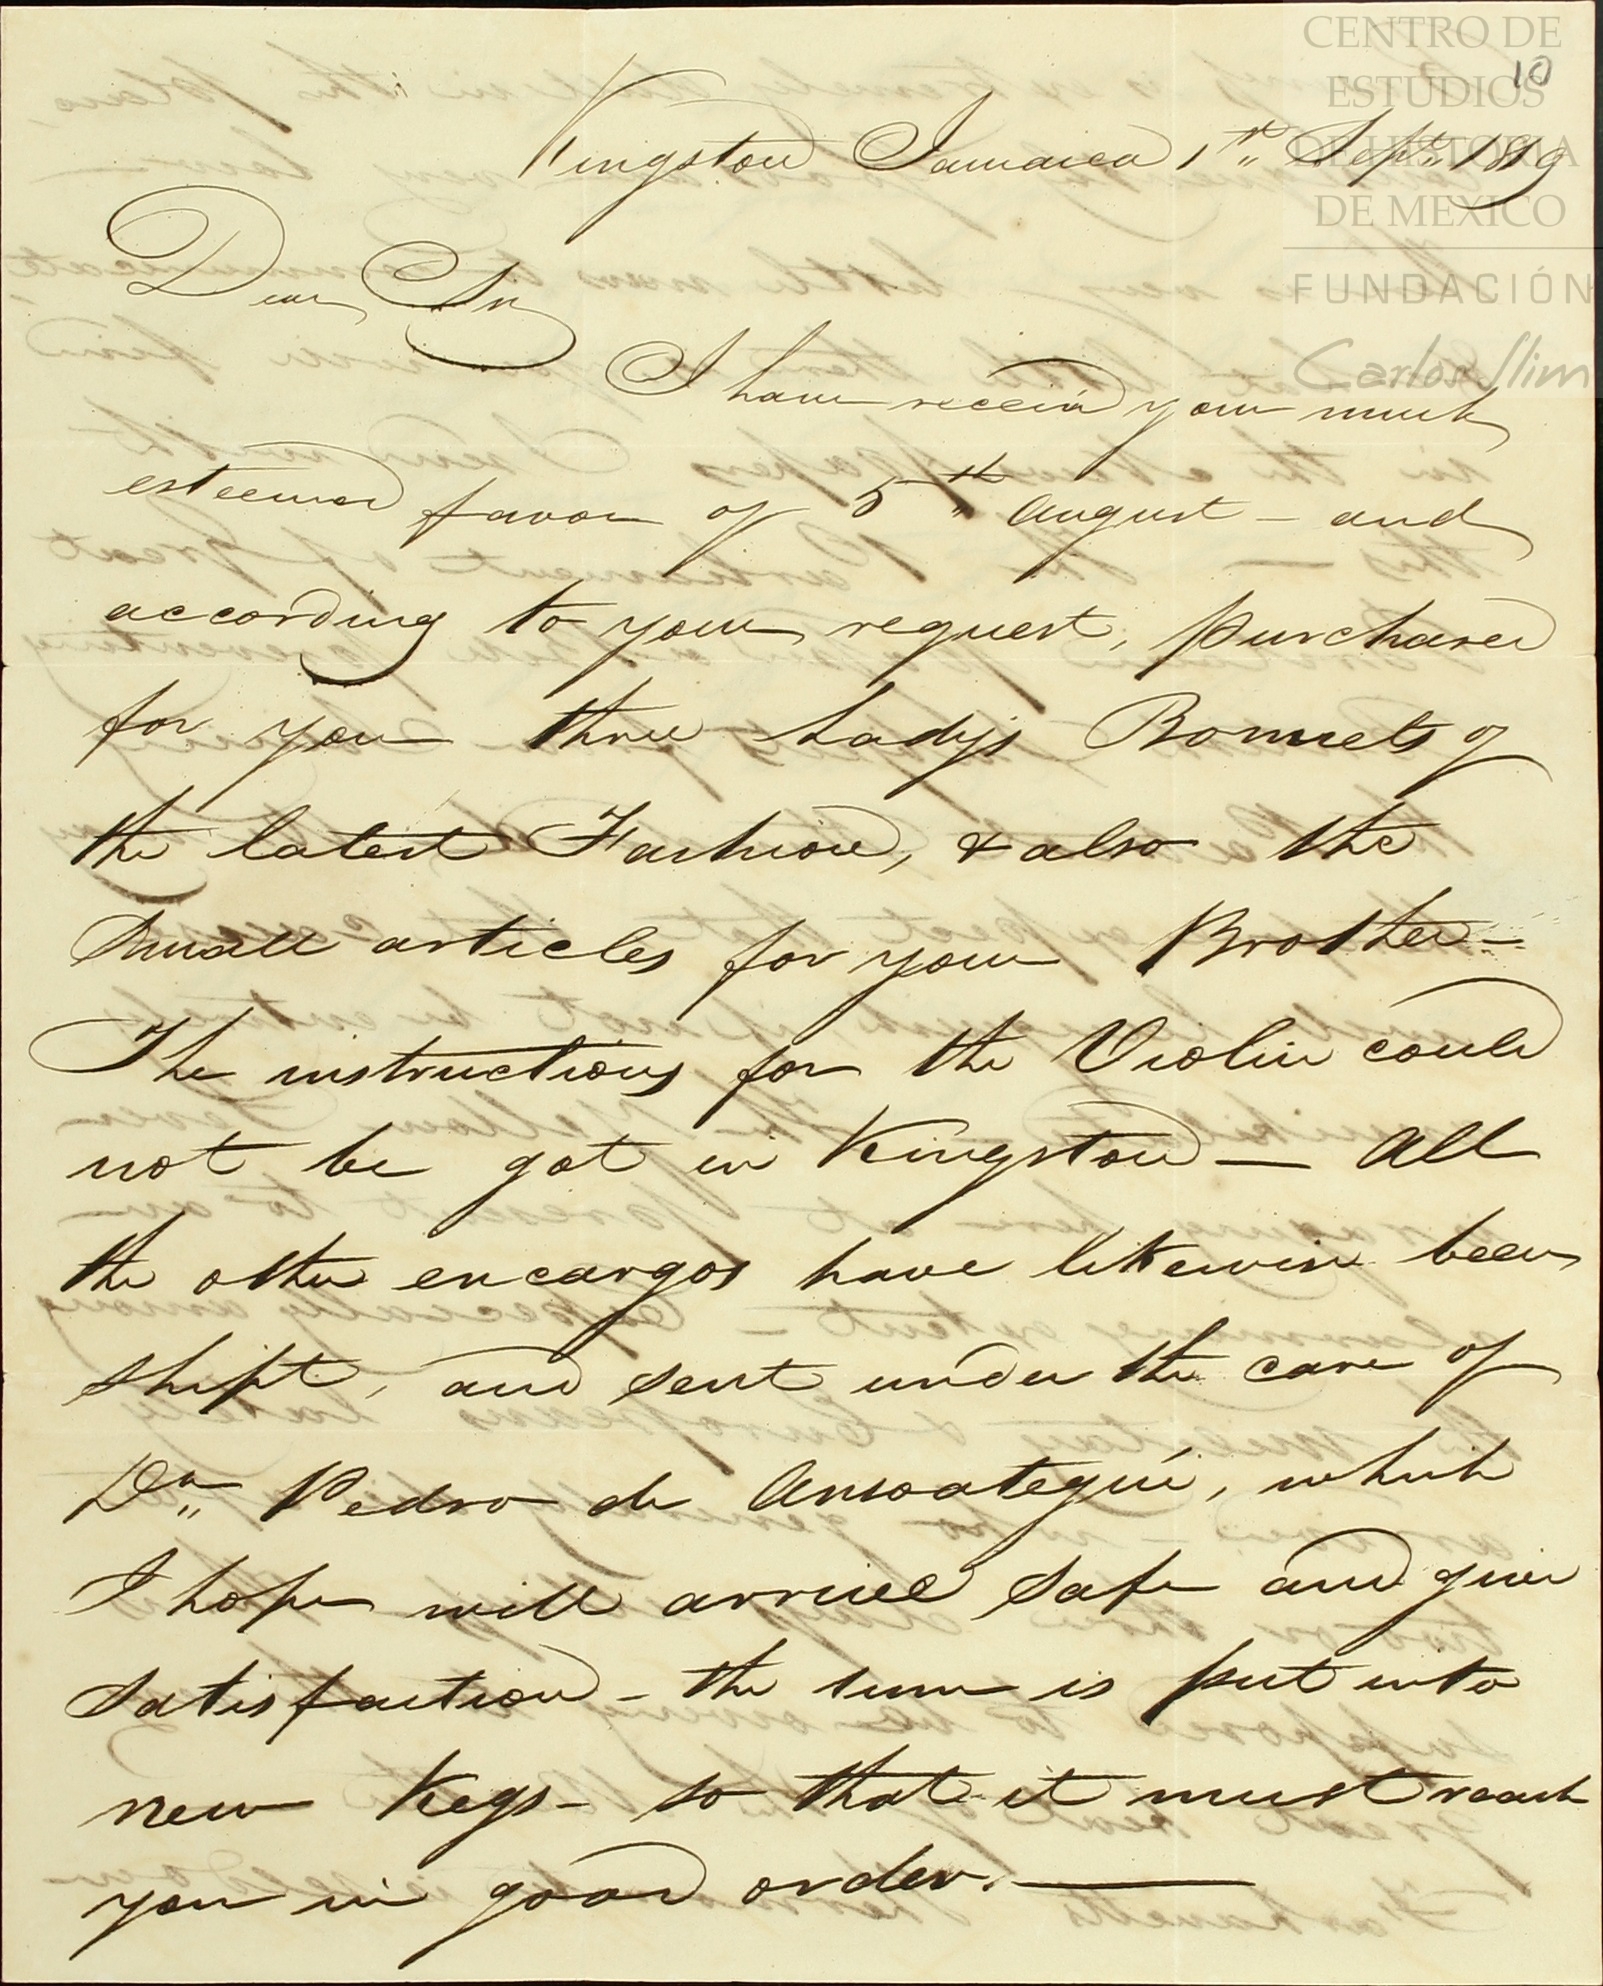 CENTRO DE
ESTUDIOS
DE HISTORIA
DE MEXICO
FUNDACIÓN
Carlos Slim
10
Kingston Jamaica 1st Sept. 1819
Dear Sir
I have receiv'd your much
esteemed favor of 5th August – and
according to your request, purchased
for you three Ladys Bonnets of
the latest Fashion, & also the
Small articles for your Brother –
The instructions for the Violin could
not be got in Kingston – All
the other encargos have likewise been
shipt, and sent under the care of
Dn. Pedro de Ansoategui, which
I hope will arrive safe and give
Satisfaction – the   is put into
new Kegs – so that it must reach
you in good order. —